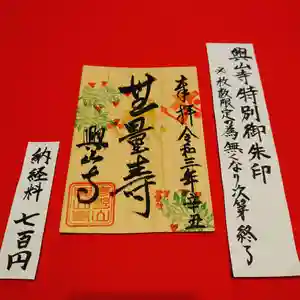 興山寺特別御朱印
※枚数限定の為無くなり次第終了
奉拝令和三年辛丑
無量寿
興山寺
納経料 七百円